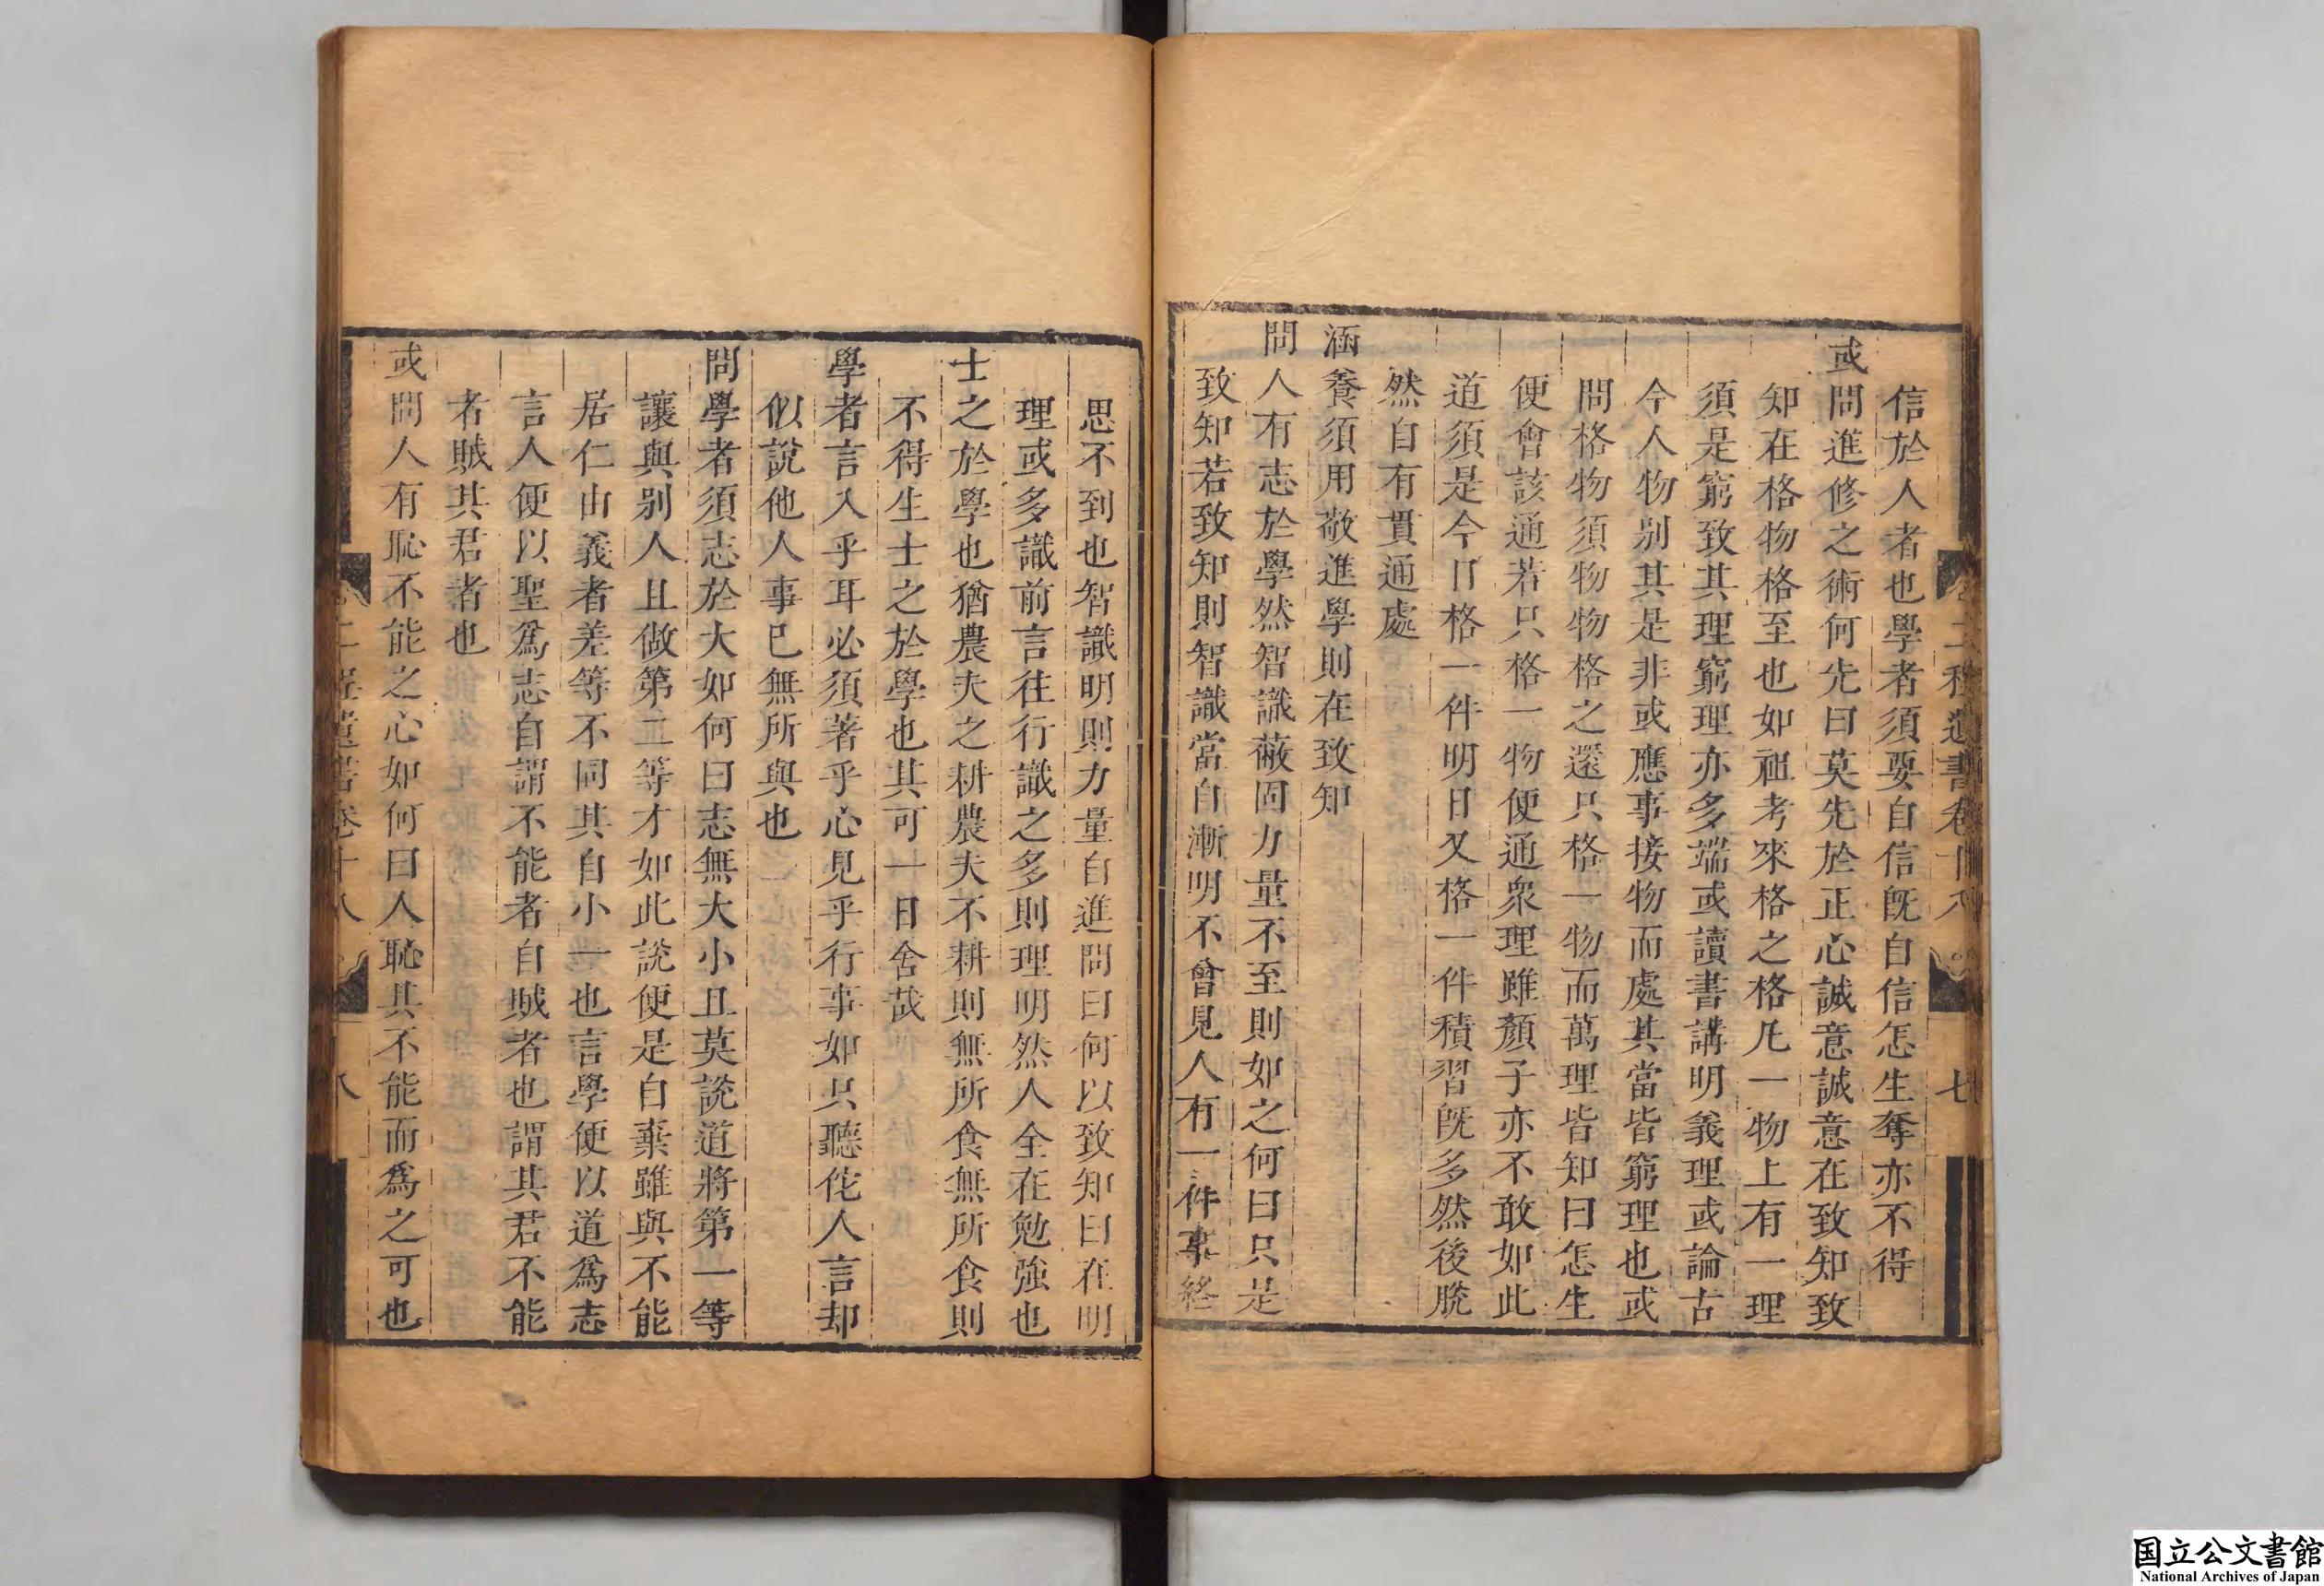 信於人者也學者須要自信旣自信怎生奪亦不得
或問進修之術何先曰莫先於正心誠意誠意在致知致
知在格物格至也如祖考來格之格凡一物上有一理
須是窮致其理窮理亦多端或讀書講明義理或論古
今人物别其是非或應事接物而處其當皆窮理也或
問格物須物物格之還只格一物而萬理皆知曰怎生
便會該通若只格一物便通衆理雖顏子亦不敢如此
道須是今日格一件明日又格一件積習旣多然後脫
然自有貫通處
涵養須用敬進學則在致知
問人有志於學然智識蔽固力量不至則如之何曰只是
致知若致知則智識當自漸明不曾見人有一件事終
二程遺書卷十八
七
思不到也智識明則力量自進問曰何以致知曰在明
理或多識前言往行識之多則理明然人全在勉強也
士之於學也猶農夫之耕農夫不耕則無所食無所食則
不得生士之於學也其可一日舍哉
學者言入乎耳必須著乎心見乎行事如只聽佗人言却
似說他人事已無所與也
問學者須志於大如何曰志無大小且莫說道將第一等
讓與别人且做第二等才如此說便是自棄雖與不能
居仁由義者差等不同其自小一也言學便以道爲志
言人便以聖爲志自謂不能者自賊者也謂其君不能
者賊其君者也
或問人有恥不能之心如何曰人恥其不能而爲之可也
二程遺書卷十八
八
国立公文書館
National Archives of Japan